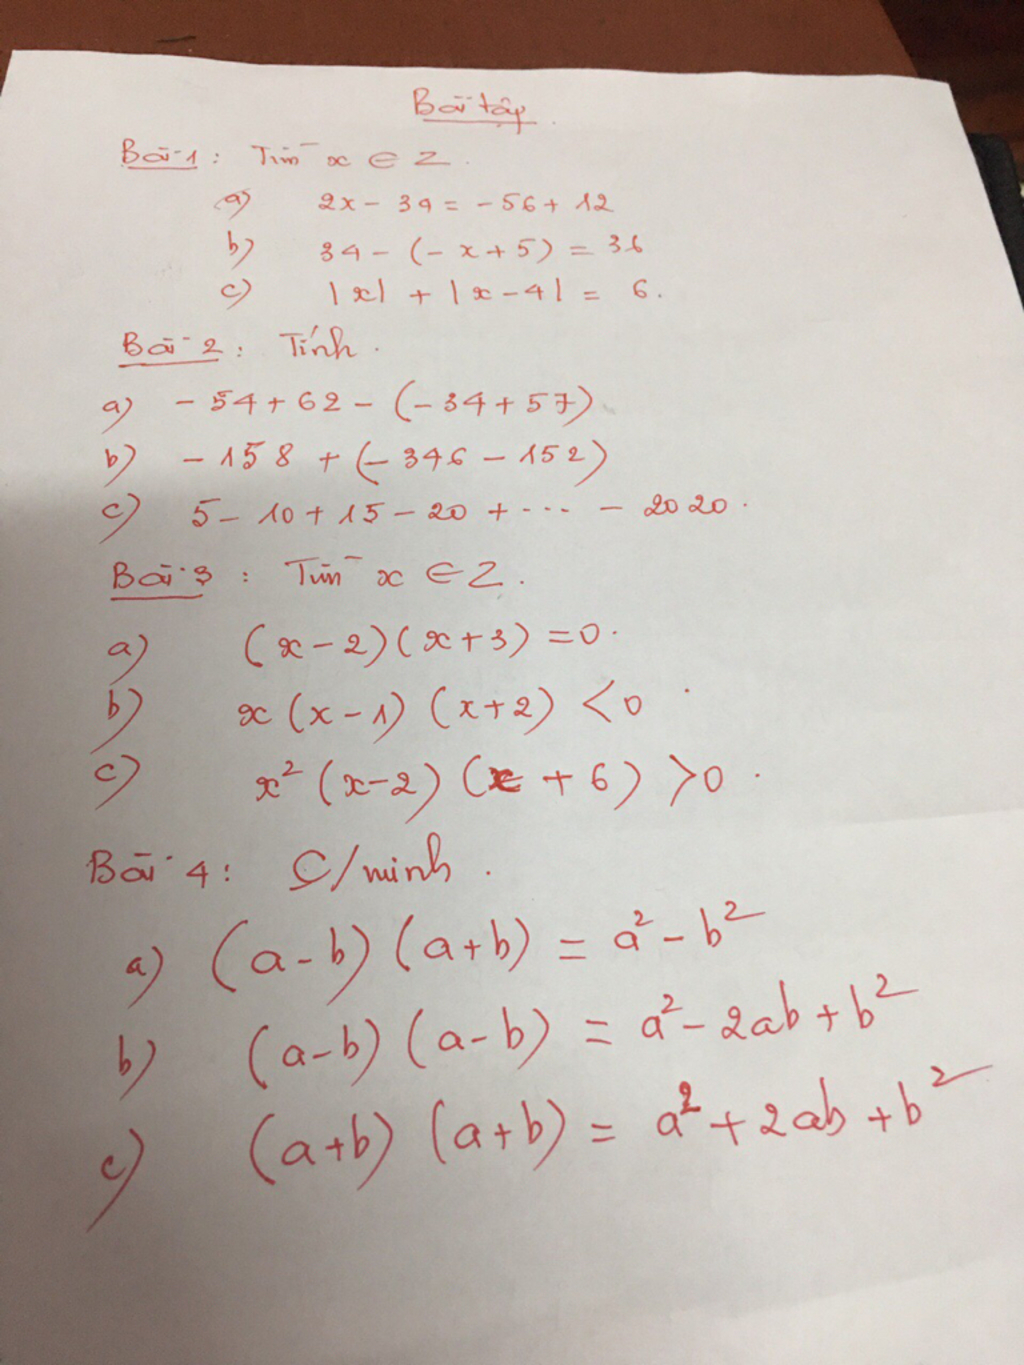 Bài tập.
Bài 1 : Tìm x ∈ Z.
a) 2x - 34 = -56 + 12
b) 34 - (-x + 5) = 36
c) |x| + |x - 4| = 6.
Bài 2 : Tính.
a) - 54 + 62 - (-34 + 57)
b) - 158 + (- 346 - 152)
c) 5 - 10 + 15 - 20 + ... - 2020.
Bài 3 : Tìm x ∈ Z.
a) (x - 2)(x + 3) = 0.
b) x (x - 1) (x + 2) < 0
c) x² (x - 2) (x + 6) > 0.
Bài 4 : C/minh.
a) (a - b) (a + b) = a² - b²
b) (a - b) (a - b) = a² - 2ab + b²
c) (a + b) (a + b) = a² + 2ab + b²